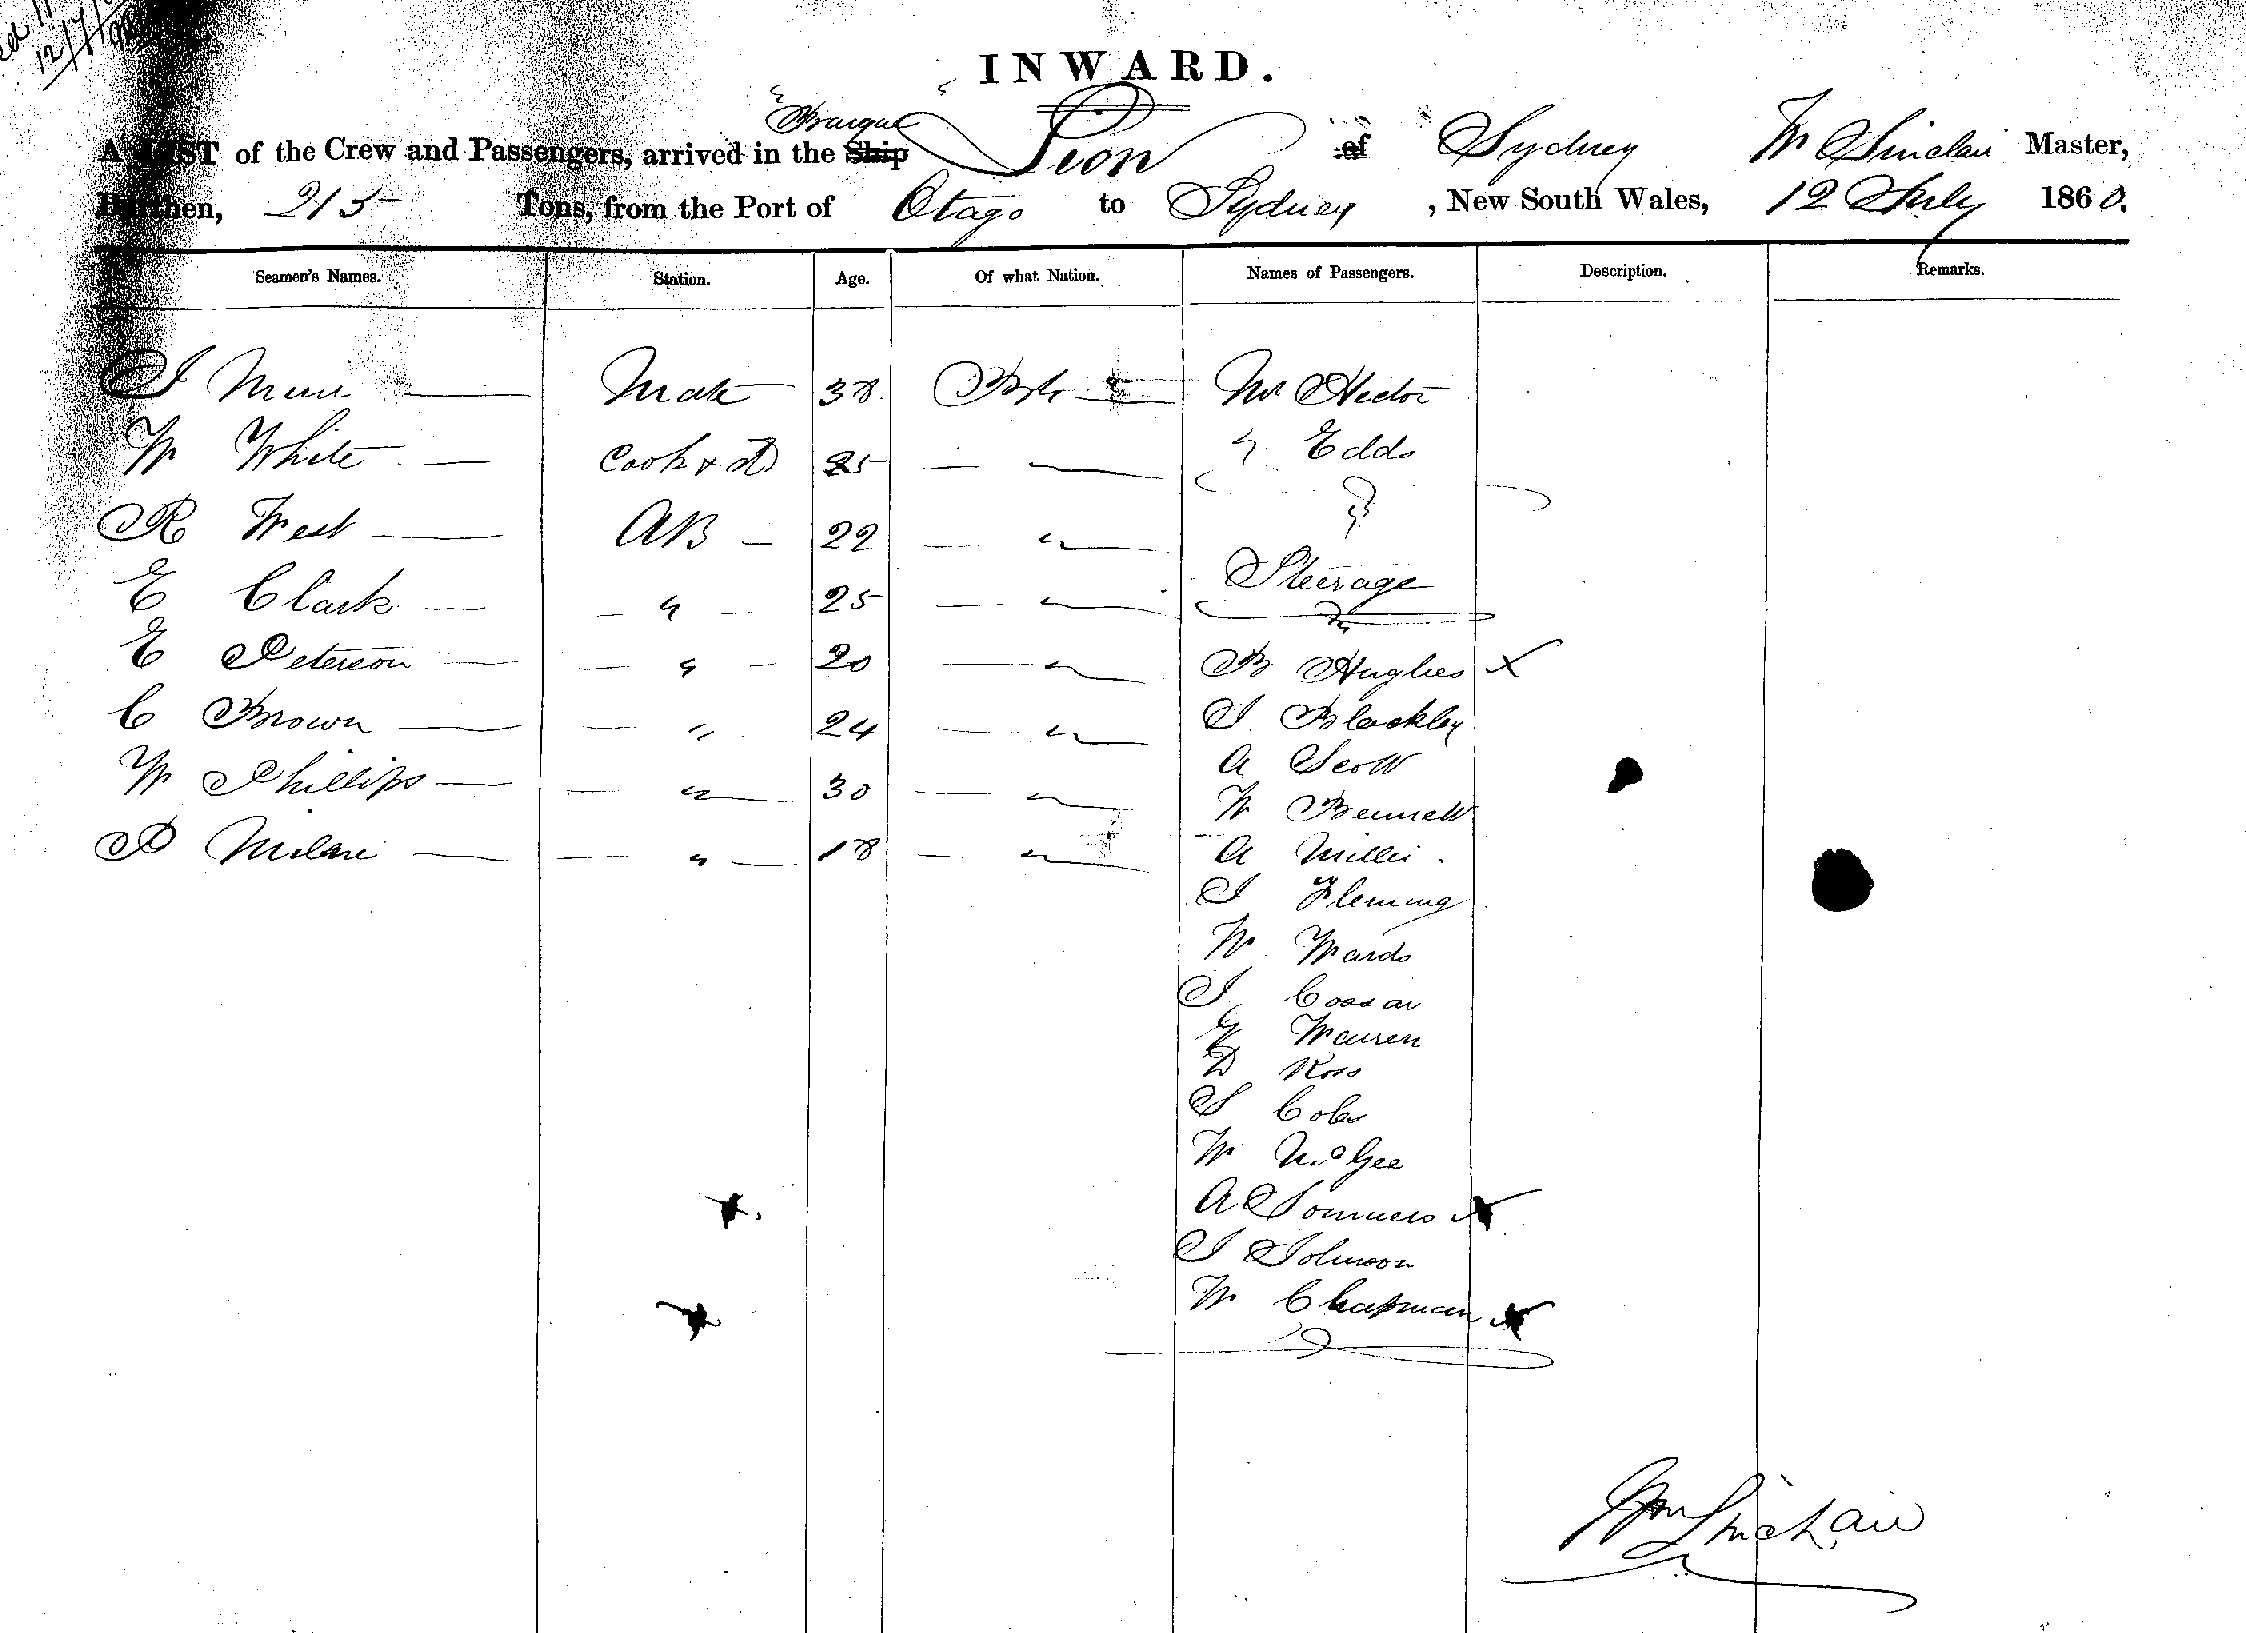 12/7/
INWARD.
Barque
A LIST of the Crew and Passengers, arrived in the Ship Lion of Sydney W Sinclair Master,
Burthen, 215 Tons, from the Port of Otago to Sydney, New South Wales, 12 July 1860.
Seamen's Names. Station. Age. Of what Nation. Names of Passengers. Description. Remarks.
J Mate 38 Mr Hector
W White — Cook & St 25 — " — " Edds
R West — AB — 22 — " —
Steerage
E Clark — " — 25 — " —
E Peterson — " — 20 — " — B Hughes X
C Brown — " — 24 — " — J Blackley
A Scott
W Phillips — " — 30 — " — W Bennett
P — " — 18 — " — A Miller
J Fleming
W Wards
J Cossar
Warren
D Ross
S Coles
W McGee
A Sommers X
J Johnson
W Chapman X
Wm Sinclair